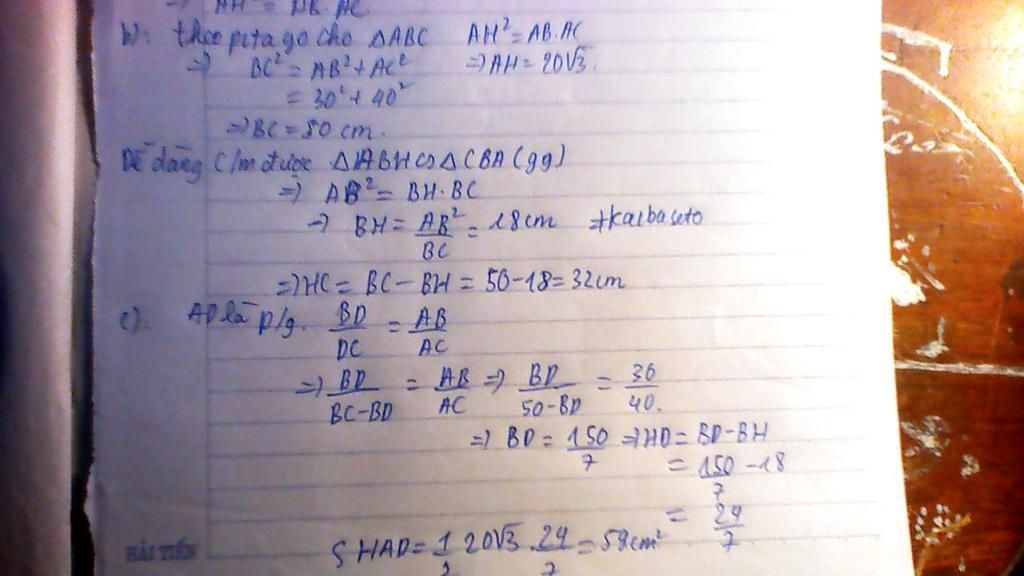 => AH² = AB.AC
b): theo pitago cho ΔABC AH² = AB.AC
=> BC² = AB² + AC² => AH = 20√3.
= 30² + 40²
=> BC = 50 cm.
Dễ dàng C/m được ΔABH ∽ ΔCBA (gg)
=> AB² = BH.BC
=> BH = AB²/BC = 18cm #kaibaseto
=> HC = BC - BH = 50 - 18 = 32cm
c). AD là p/g. BD/DC = AB/AC
=> BD/BC-BD = AB/AC => BD/50-BD = 30/40.
=> BD = 150/7 => HD = BD - BH
= 150/7 - 18
= 24/7
S HAD = 1/2 20√3 . 24/7 = 59cm²
HẢI TIẾN